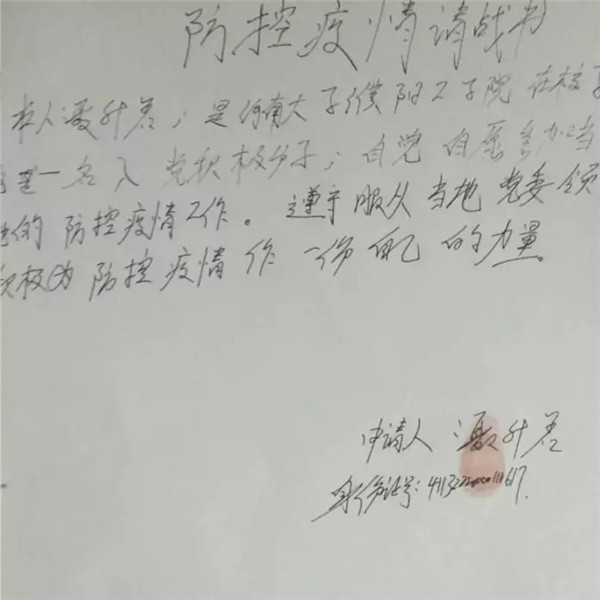 防控疫情请战书
本人潘升差，是河南大学濮阳工学院在校
是一名入党积极分子，自觉自愿参加当
的防控疫情工作。遵守服从当地党委领
积极为防控疫情作一份自己的力量。
申请人
身份证号：